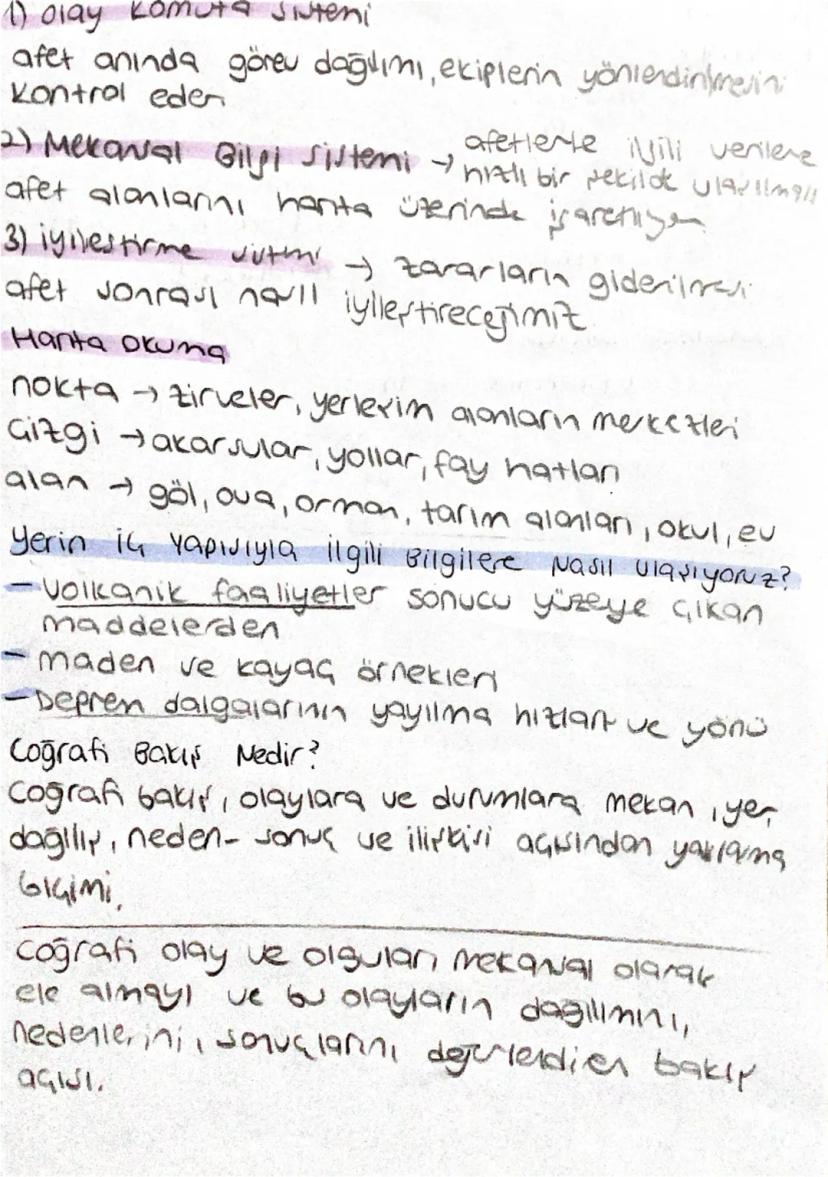 1) Olay Komuta Sistemi
afet anında görev dağılımı, ekiplerin yönlendirilmesini
kontrol eder
2) Mekansal Bilgi Sistemi → afetlerle ilgili verilere
hızlı bir şekilde ulaşılması
afet alanlarını harita üzerinde işaretliyen
3) iyileştirme → zararların giderilmesi
afet sonrası nasıl iyileştireceğimiz
Harita okuma
nokta → zirveler, yerleşim alanların merkezleri
Çizgi → akarsular, yollar, fay hatları
alan → göl, ova, orman, tarım alanları, okul, ev
yerin iç yapısıyla ilgili Bilgilere Nasıl Ulaşıyoruz?
- Volkanik faaliyetler sonucu yüzeye çıkan
maddelerden
- maden ve kayaç örnekleri
- Deprem dalgalarının yayılma hızları ve yönü
Coğrafi Bakış Nedir?
Coğrafi bakış, olaylara ve durumlara mekan, yer,
dağılış, neden- sonuç ve ilişkisi açısından yaklaşma
biçimi.
Coğrafi olay ve olguları mekansal olarak
ele almayı ve bu olayların dağılımını,
nedenlerini, sonuçlarını bakış
açısı.